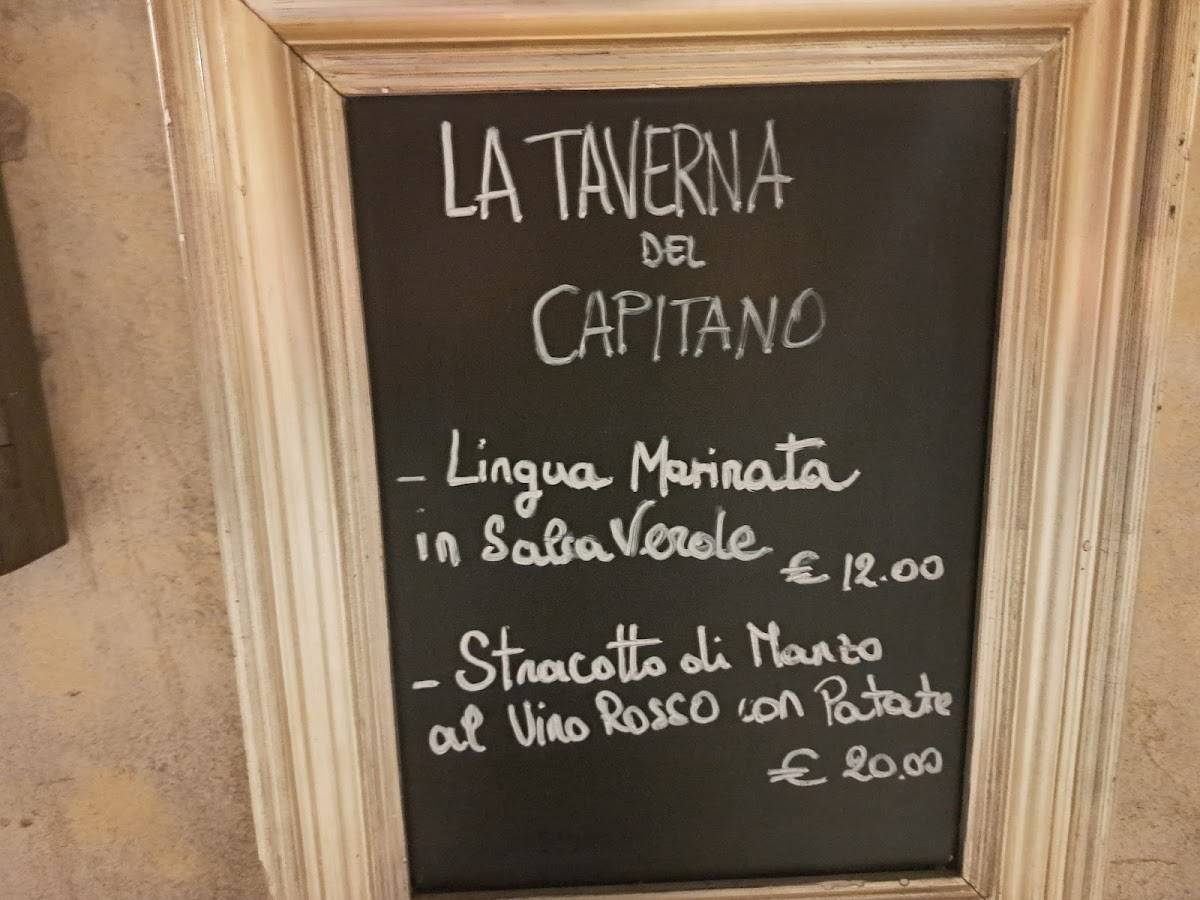 LA TAVERNA
DEL
CAPITANO
- Lingua Marinata
in Salsa Verde
€ 12.00
- Stracotto di Manzo
al Vino Rosso con Patate
€ 20.00